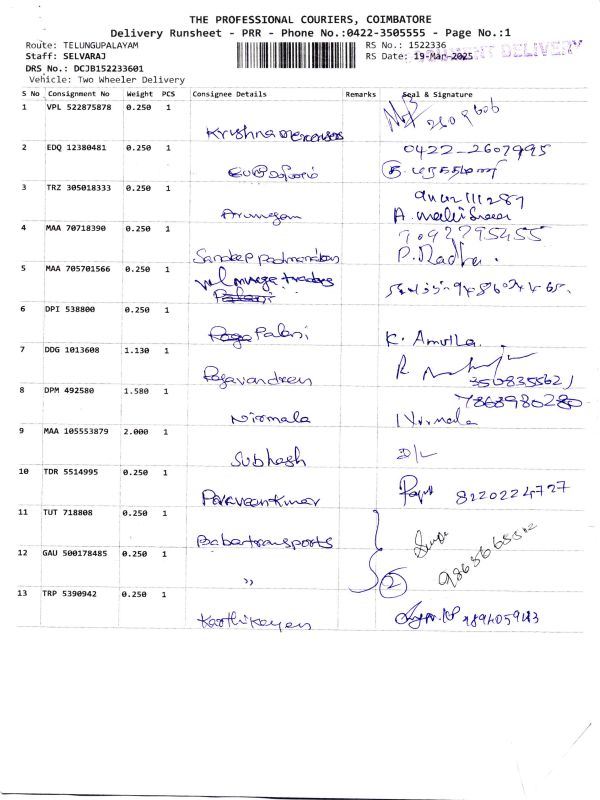 THE PROFESSIONAL COURIERS, COIMBATORE
Delivery Runsheet - PRR - Phone No.:0422-3505555 - Page No.:1
Route: TELUNGUPALAYAM RS No.: 1522336 DELIVERY
Staff: SELVARAJ RS Date: 19-Mar-2025
DRS No.: DCJB152233601
Vehicle: Two Wheeler Delivery
S No Consignment No Weight PCS Consignee Details Remarks Seal & Signature
1 VPL 522875878 0.250 1 Krishna
2 EDQ 12380481 0.250 1 0422-2607995
3 TRZ 305018333 0.250 1 Arumugam
4 MAA 70718390 0.250 1 Sandeep Padmanaban 7092795455 P. Radha.
5 MAA 705701566 0.250 1 Vel muruga traders
6 DPI 538800 0.250 1 Palani K. Amutha.
7 DDG 1013608 1.130 1 Ragavandreen R
8 DPM 492580 1.580 1 Nirmala 7868980280 Nirmala
9 MAA 105553879 2.000 1 Subhash D/L
10 TDR 5514995 0.250 1 Paraveenkumar 8220224727
11 TUT 718808 0.250 1 Babatransports
12 GAU 500178485 0.250 1 ,, 2
13 TRP 5390942 0.250 1 Karthikeyen